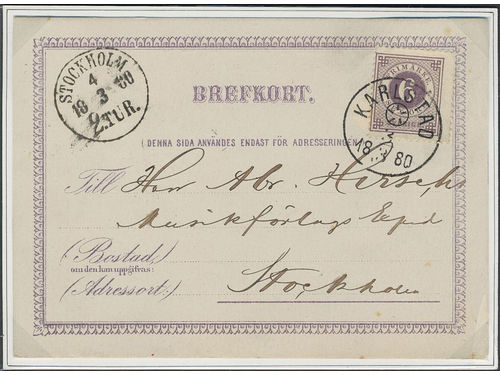 STOCKHOLM
4
18 3 80
2.TUR.
FRIMÄRKE
KARLSTAD
3
18 3 80
BREFKORT.
(DENNA SIDA ANVÄNDES ENDAST FÖR ADRESSERINGEN.)
Till Herr Abr. Hirsch
Musikförlags Exped
(Bostad)
om den kan uppgifvas:
Stockholm
(Adressort:)